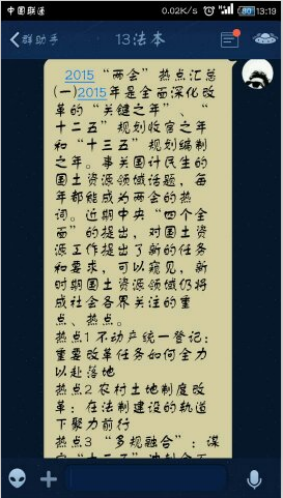 中国联通 0.02K/s 80 13:19
群助手 13法本
2015“两会”热点汇总
(一)2015年是全面深化改
革的“关键之年”、“
十二五”规划收官之年
和“十三五”规划编制
之年。事关国计民生的
国土资源领域话题，每
年都能成为两会的热
词。近期中央“四个全
面”的提出，对国土资
源工作提出了新的任务
和要求，可以窥见，新
时期国土资源领域仍将
成社会各界关注的重
点、热点。
热点1不动产统一登记：
重要改革任务如何全力
以赴落地
热点2农村土地制度改
革：在法制建设的轨道
下聚力前行
热点3“多规融合”：谋